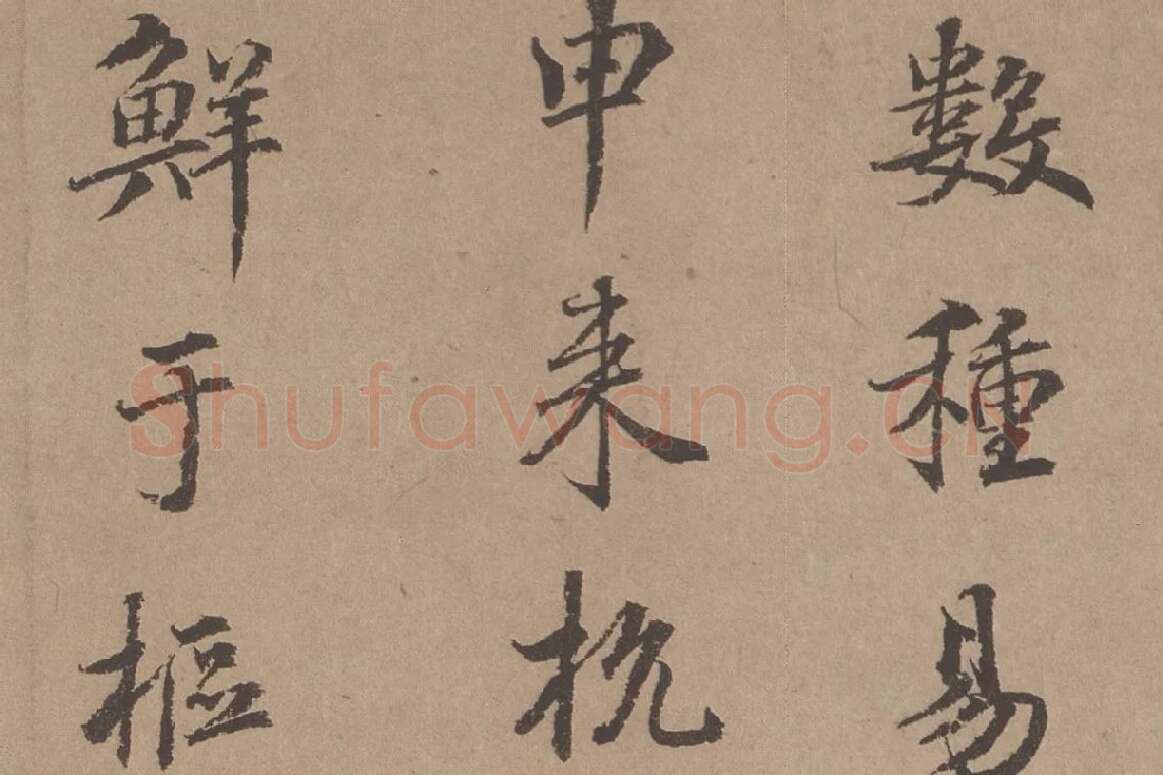 數種易
申来杭
鮮于樞
Shufawang.cn